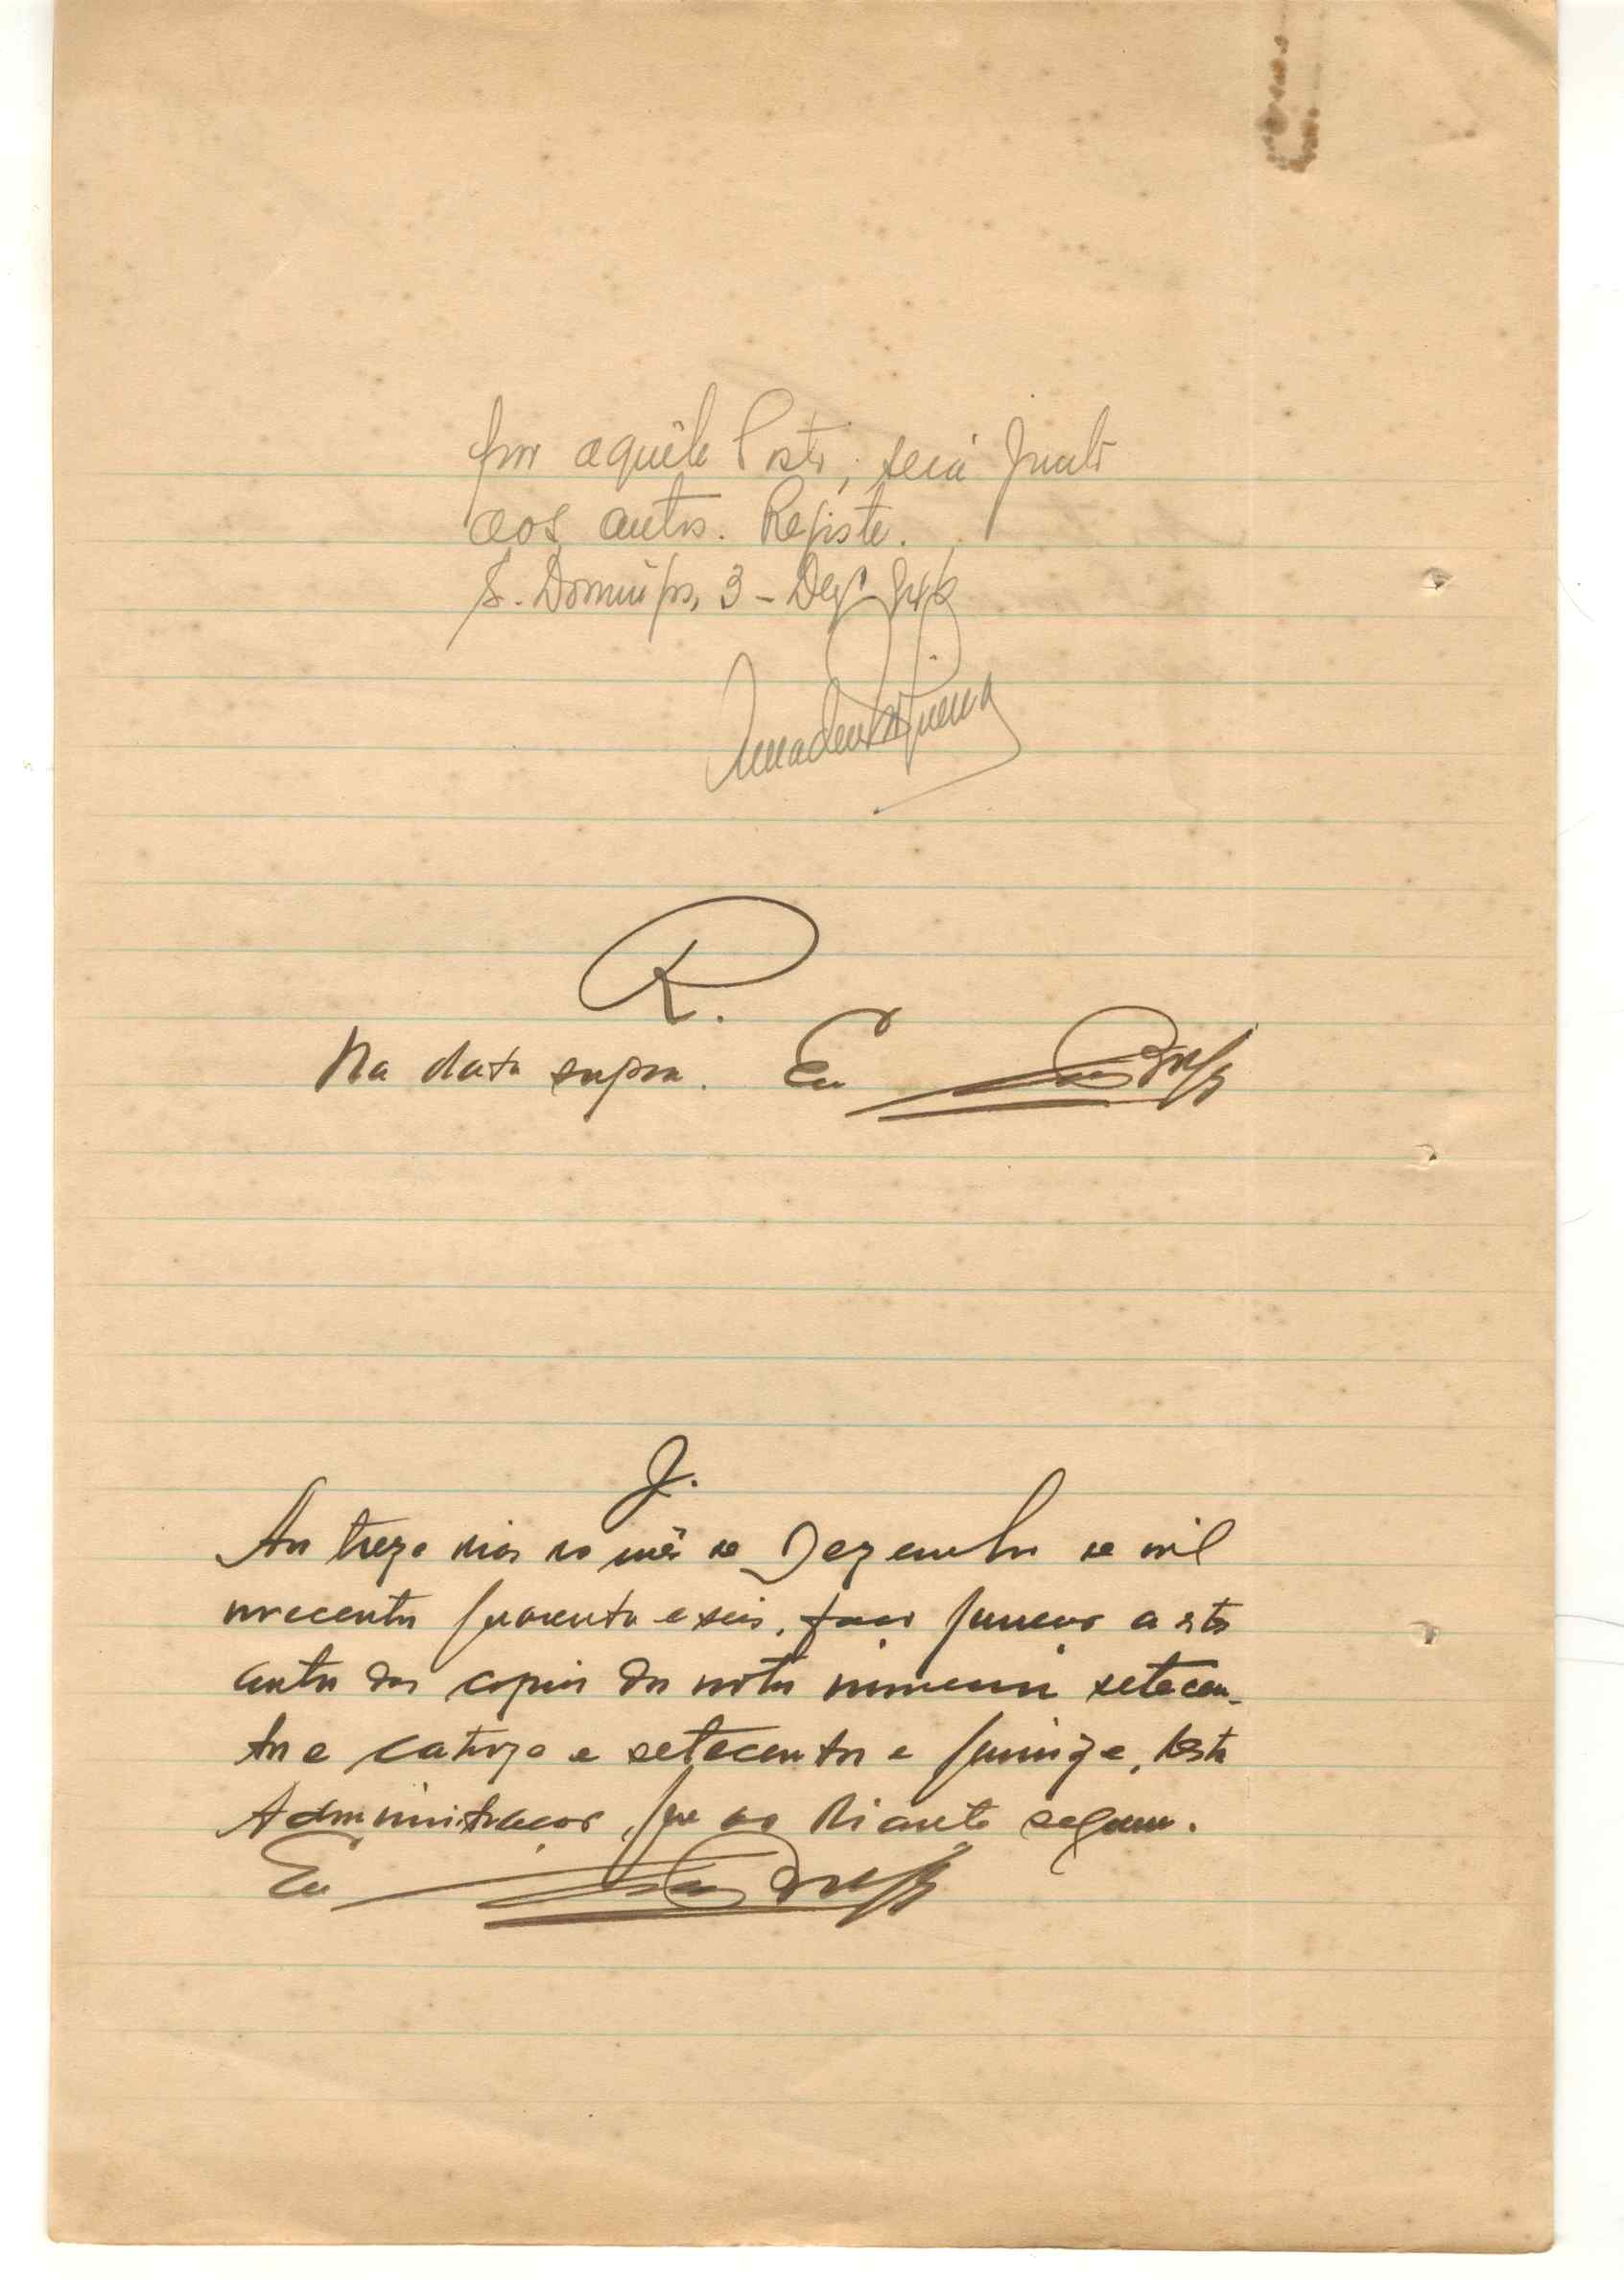 por aquêle Posto, será junto
aos autos. Registe.
S. Domingos, 3 - Dezº 946
R.
Na data supra. Eu
J.
Aos treze dias do mês de Dezembro de mil
novecentos quarenta e seis, faço juncao a estes
autos das copias das notas numeros setecen-
tos e catorze e setecentos e quinze, desta
Administracao, que ao diante seguem.
Eu